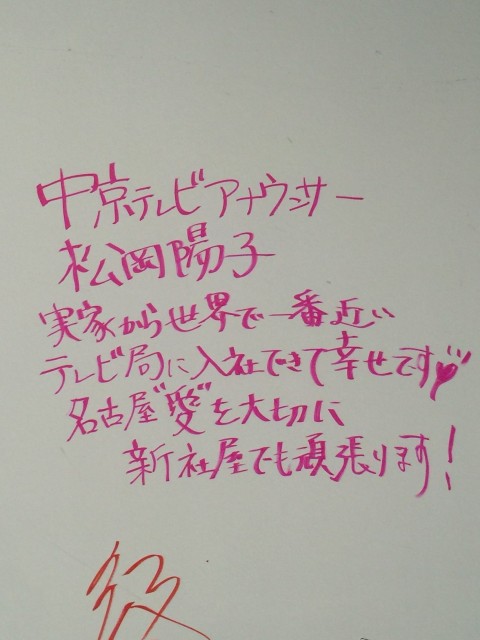 中京テレビアナウンサー
松岡陽子
実家から世界で一番近い
テレビ局に入社できて幸せです♥
名古屋"愛"を大切に
新社屋でも頑張ります！